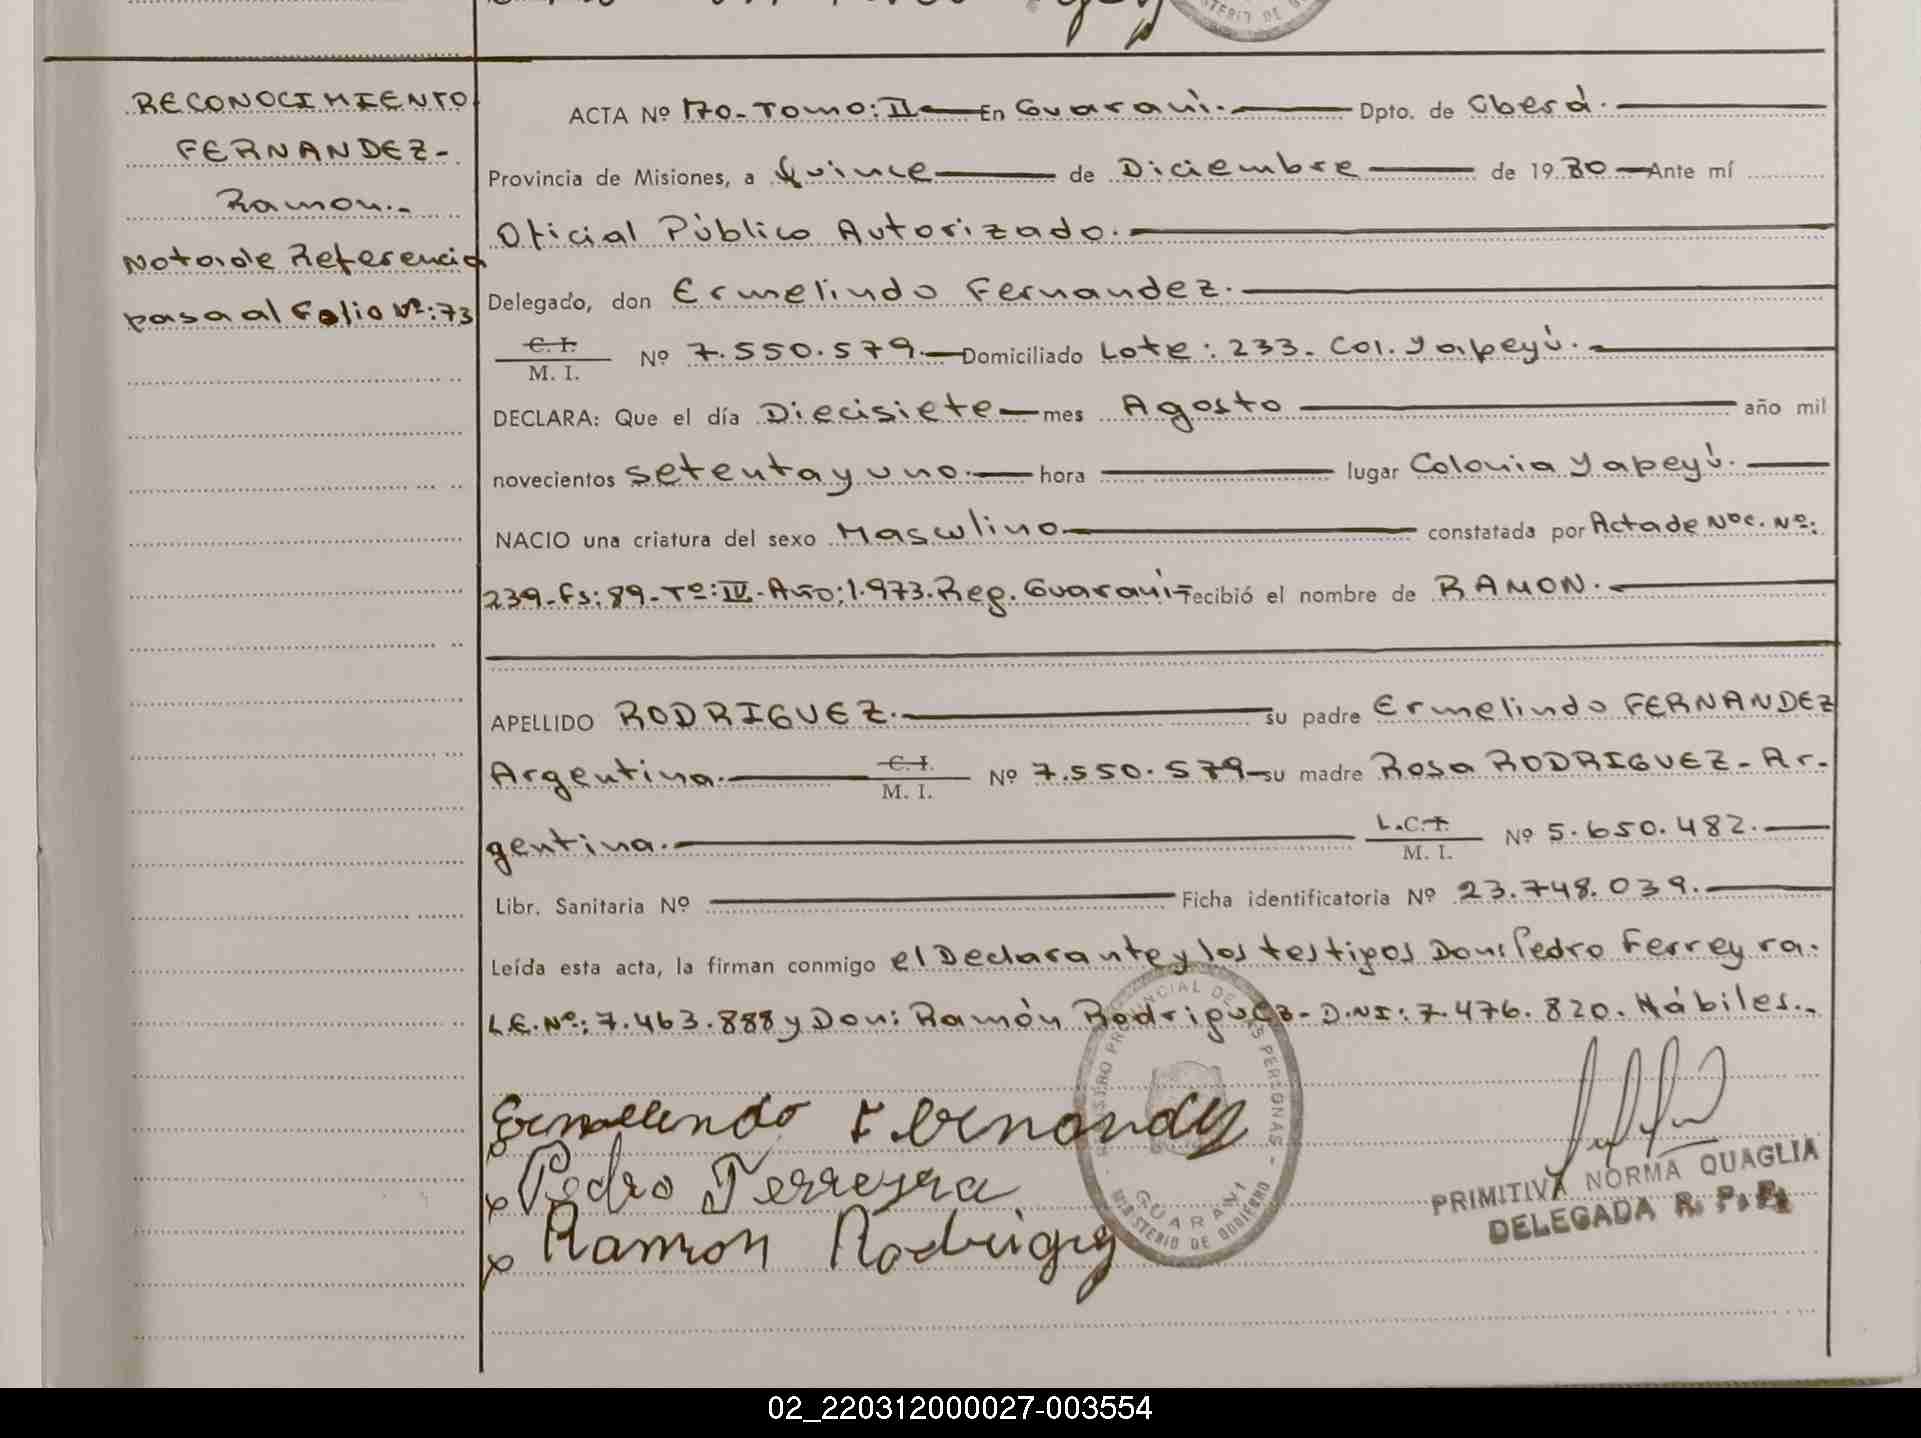 RECONOCIMIENTO
FERNANDEZ-
Ramon.-
Nota de Referencia
pasa al Folio Nº:73
ACTA Nº 170-Tomo:II En Guaraní. Dpto. de Oberá.
Provincia de Misiones, a Quince de Diciembre de 1980 Ante mí
Oficial Público Autorizado.
Delegado, don Ermelindo Fernandez.
C. I.
M. I. Nº 7.550.579. Domiciliado Lote: 233. Col. Yapeyú.
DECLARA: Que el día Diecisiete mes Agosto año mil
novecientos setenta y uno. hora lugar Colonia Yapeyú.
NACIO una criatura del sexo Masculino constatada por Acta de Nac. Nº:
239-Fs:89-Tº:IV-Año:1.973.Reg. Guaraní- recibió el nombre de RAMON.
APELLIDO RODRIGUEZ. su padre Ermelindo FERNANDEZ
Argentina. C. I.
M. I. Nº 7.550.579 su madre Rosa RODRIGUEZ- Ar-
gentina. L.C.I.
M. I. Nº 5.650.482.
Libr. Sanitaria Nº Ficha identificatoria Nº 23.748.039.
Leída esta acta, la firman conmigo el Declarante y los testigos Don: Pedro Ferreyra.
L.E.Nº: 7.463.888 y Don: Ramón Rodriguez- D.NI: 7.476.820. Hábiles.-
REGISTRO PROVINCIAL DE LAS PERSONAS
GUARANI
MINISTERIO DE GOBIERNO
Ermelindo Fernandez
x Pedro Ferreyra
x Ramon Rodriguez
PRIMITIVA NORMA QUAGLIA
DELEGADA R. P. P.
02_220312000027-003554